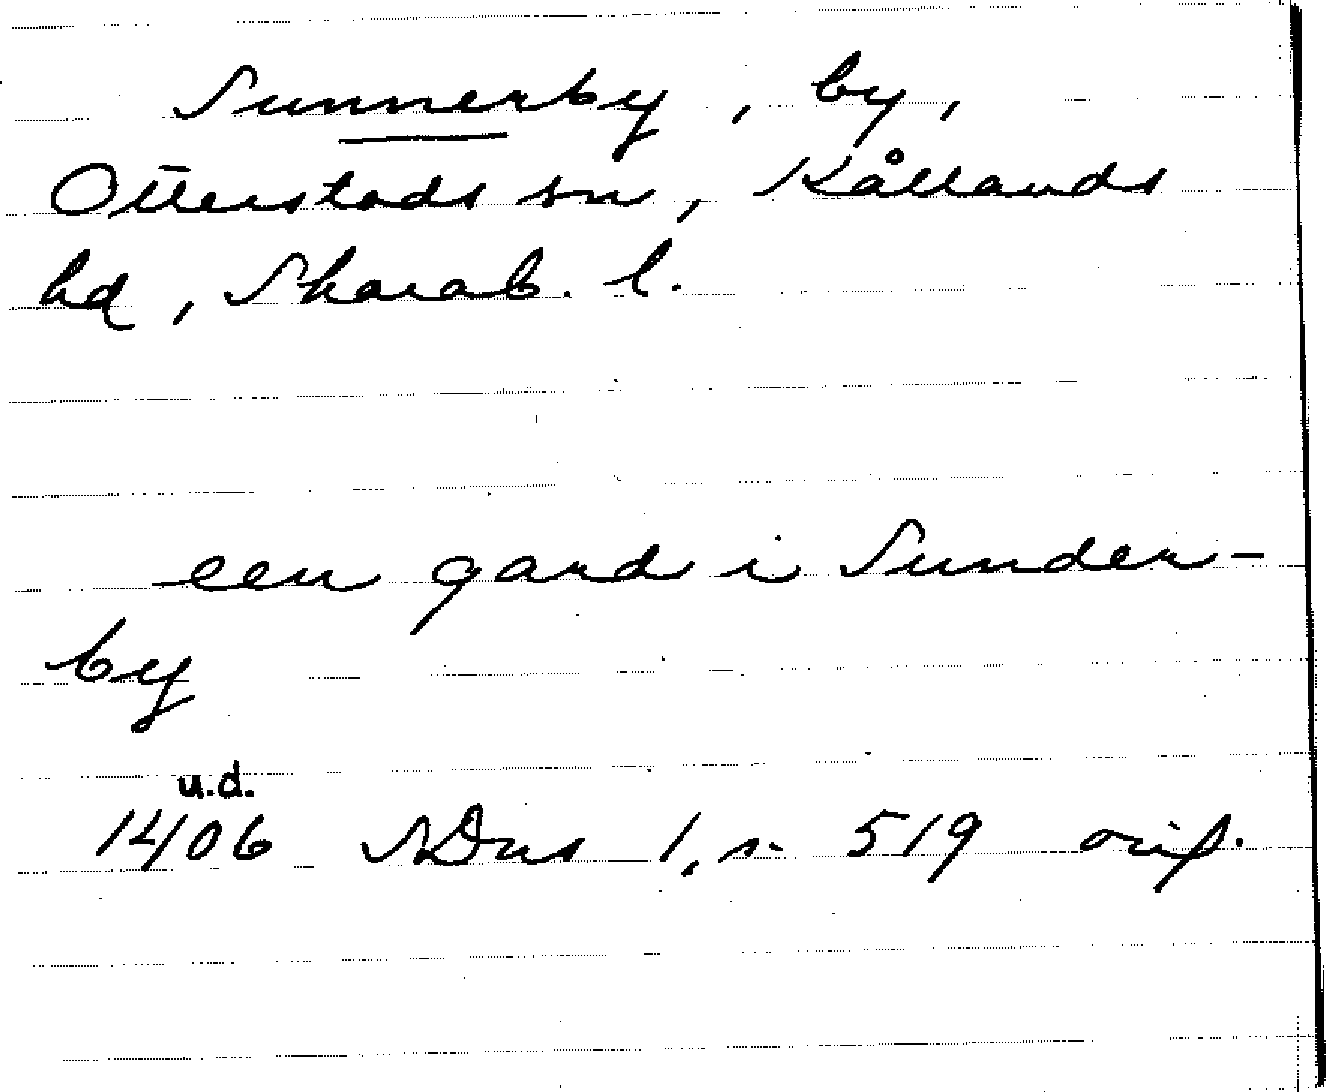 Sunnerby, by,
Otterstads sn, Kållands
hd, Skarab. l.
een gard i Sunder-
by
u.d.
1406 SDns 1, s. 519 orig.